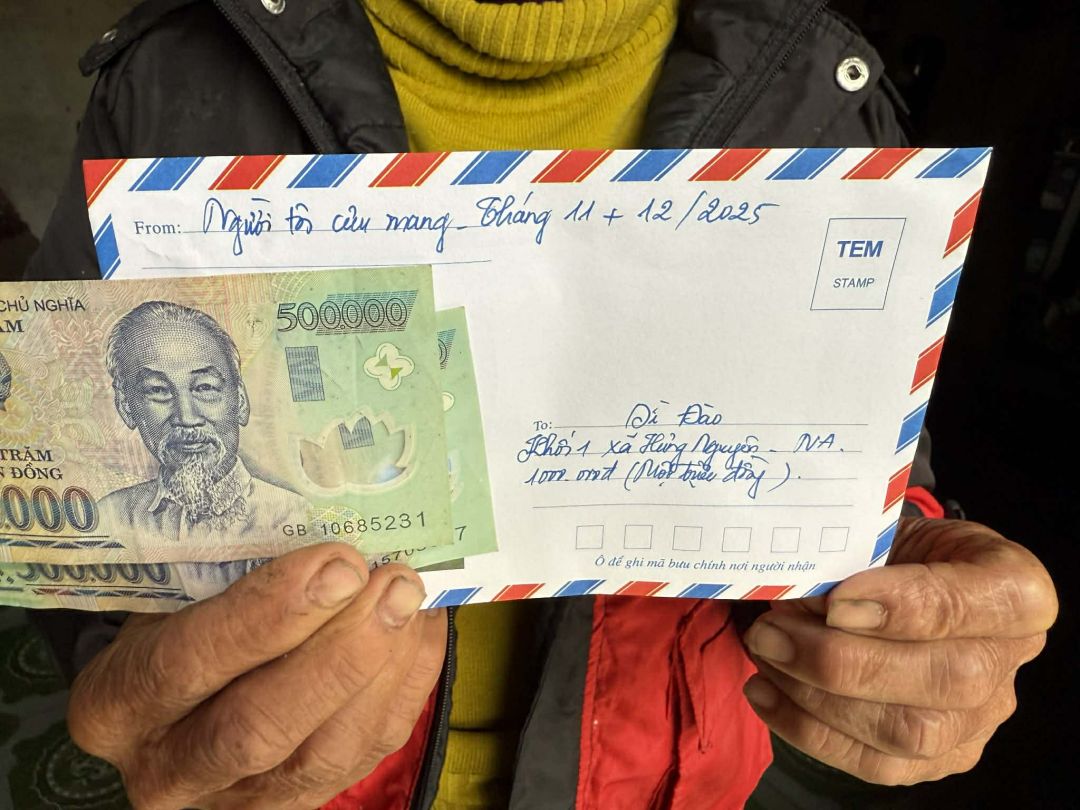 From: Người tôi cưu mang - Tháng 11 + 12/2025
TEM
STAMP
CHỦ NGHĨA
AM
500.000
TRĂM
N ĐỒNG
.000
GB 10685231
500.000
7
To: Dì Đào
Khối 1 xã Hưng Nguyên - NA.
1000.000đ (Một triệu đồng).
Ô để ghi mã bưu chính nơi người nhận